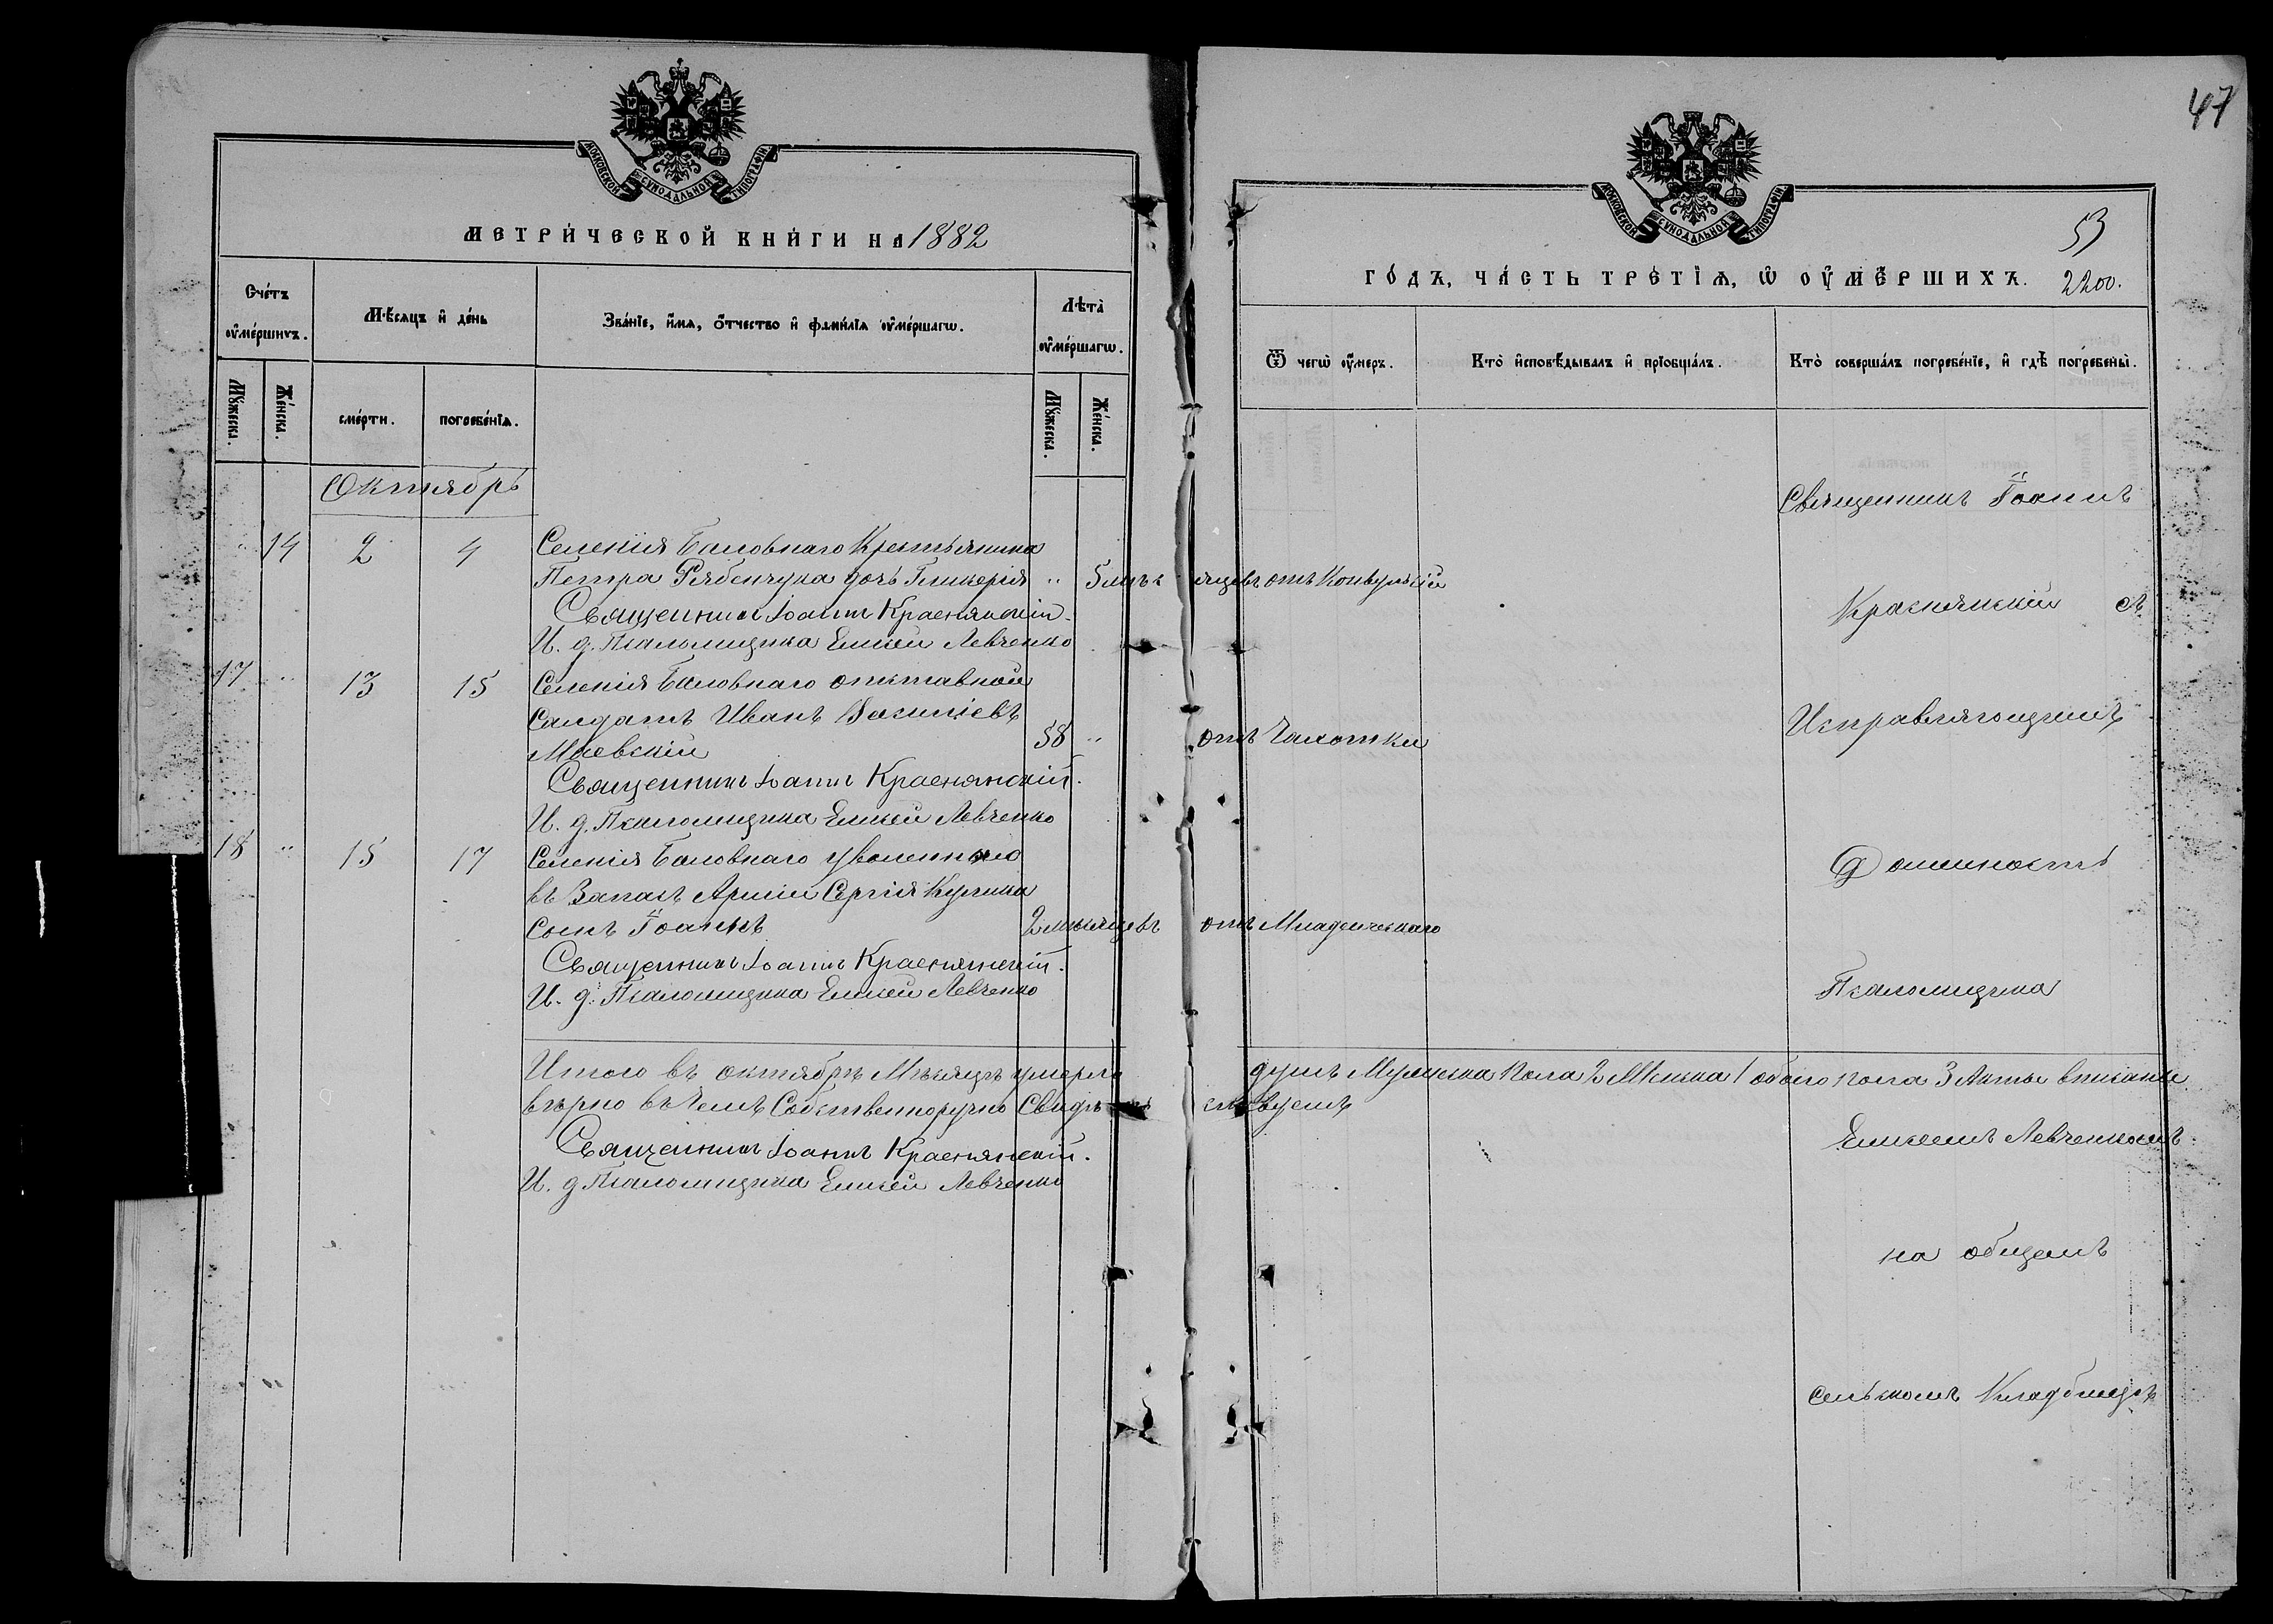 47
МОСКОВСКОЙ СѴНОДАЛЬНОЙ ТИПОГРАФІИ
МОСКОВСКОЙ СѴНОДАЛЬНОЙ ТИПОГРАФІИ
МЕТРИЧЕСКОЙ КНИГИ НА 1882
53
ГОДЪ, ЧАСТЬ ТРЕТІѦ, Ѡ ОУМЕРШИХЪ. 2200.
Счетъ оумершихъ.
Мѣсяцъ и день
Званіе, имя, отчество и фамилія оумершагѡ.
Лѣта оумершагѡ.
Ѿ чегѡ оумеръ.
Кто исповѣдывалъ и пріобщалъ.
Кто совершалъ погребеніе, и гдѣ погребены.
Мужеска.
Женска.
смерти.
погребенія.
Мужеска.
Женска.
Октябрь
Священникъ Іоаннъ
" 14 2 4 Селенія Баловнаго Крестьянина
Петра Рябенчука дочь Гликерія " 5 мѣсяцевъ отъ Конвульсій
Священникъ Іоаннъ Краснянскій.
Краснянскій съ
И. д. Псаломщика Елисей Левченко
17 " 13 15 Селенія Баловнаго отставной
Солдатъ Иванъ Васильевъ
Исправляющимъ
Маевскій 58 " отъ Чахотки
Священникъ Іоаннъ Краснянскій.
И. д. Псаломщика Елисей Левченко
18 " 15 17 Селенія Баловнаго уволеннаго
Должность
въ Запасъ Арміи Сергія
Сынъ Іоаннъ 2 мѣсяцевъ отъ Младенческаго
Священникъ Іоаннъ Краснянскій.
И. д. Псаломщика Елисей Левченко
Псаломщика
Итого въ октябрѣ Мѣсяцѣ умерло душъ Мужеска пола 2 Женска 1 обоего пола 3 Акты вписаны
вѣрно въ чемъ Собственноручно Свидѣтельствуемъ
Священникъ Іоаннъ Краснянскій.
Елисеемъ Левченкомъ
И. д Псаломщика Елисей Левченко
на общемъ
сельскомъ Кладбищѣ